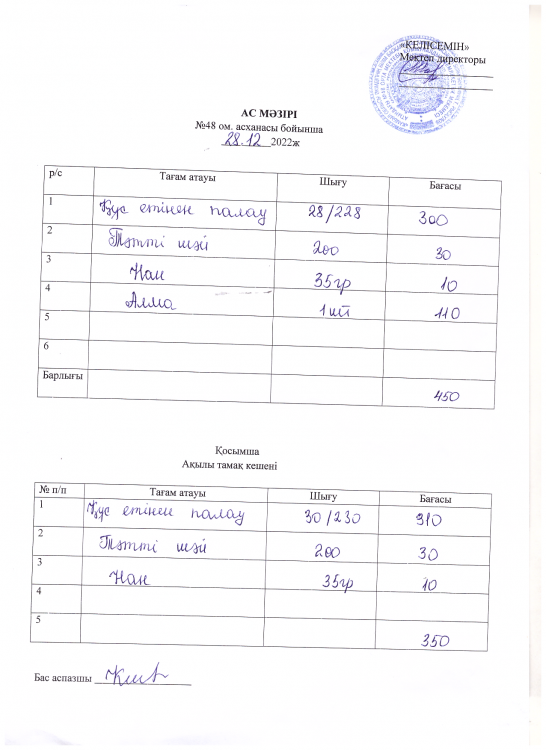 «КЕЛІСЕМІН»
Мектеп директоры
АС МӘЗІРІ
№48 ом. асханасы бойынша
28.12 2022ж
р/с Тағам атауы Шығу Бағасы
1 Құс етінен палау 28/228 300
2 Тәтті шәй 200 30
3 Нан 35гр 10
4 Алма 1шт 110
5
6
Барлығы 450
Қосымша
Ақылы тамақ кешені
№ п/п Тағам атауы Шығу Бағасы
1 Құс етінен палау 30/230 310
2 Тәтті шәй 200 30
3 Нан 35гр 10
4
5 350
Бас аспазшы